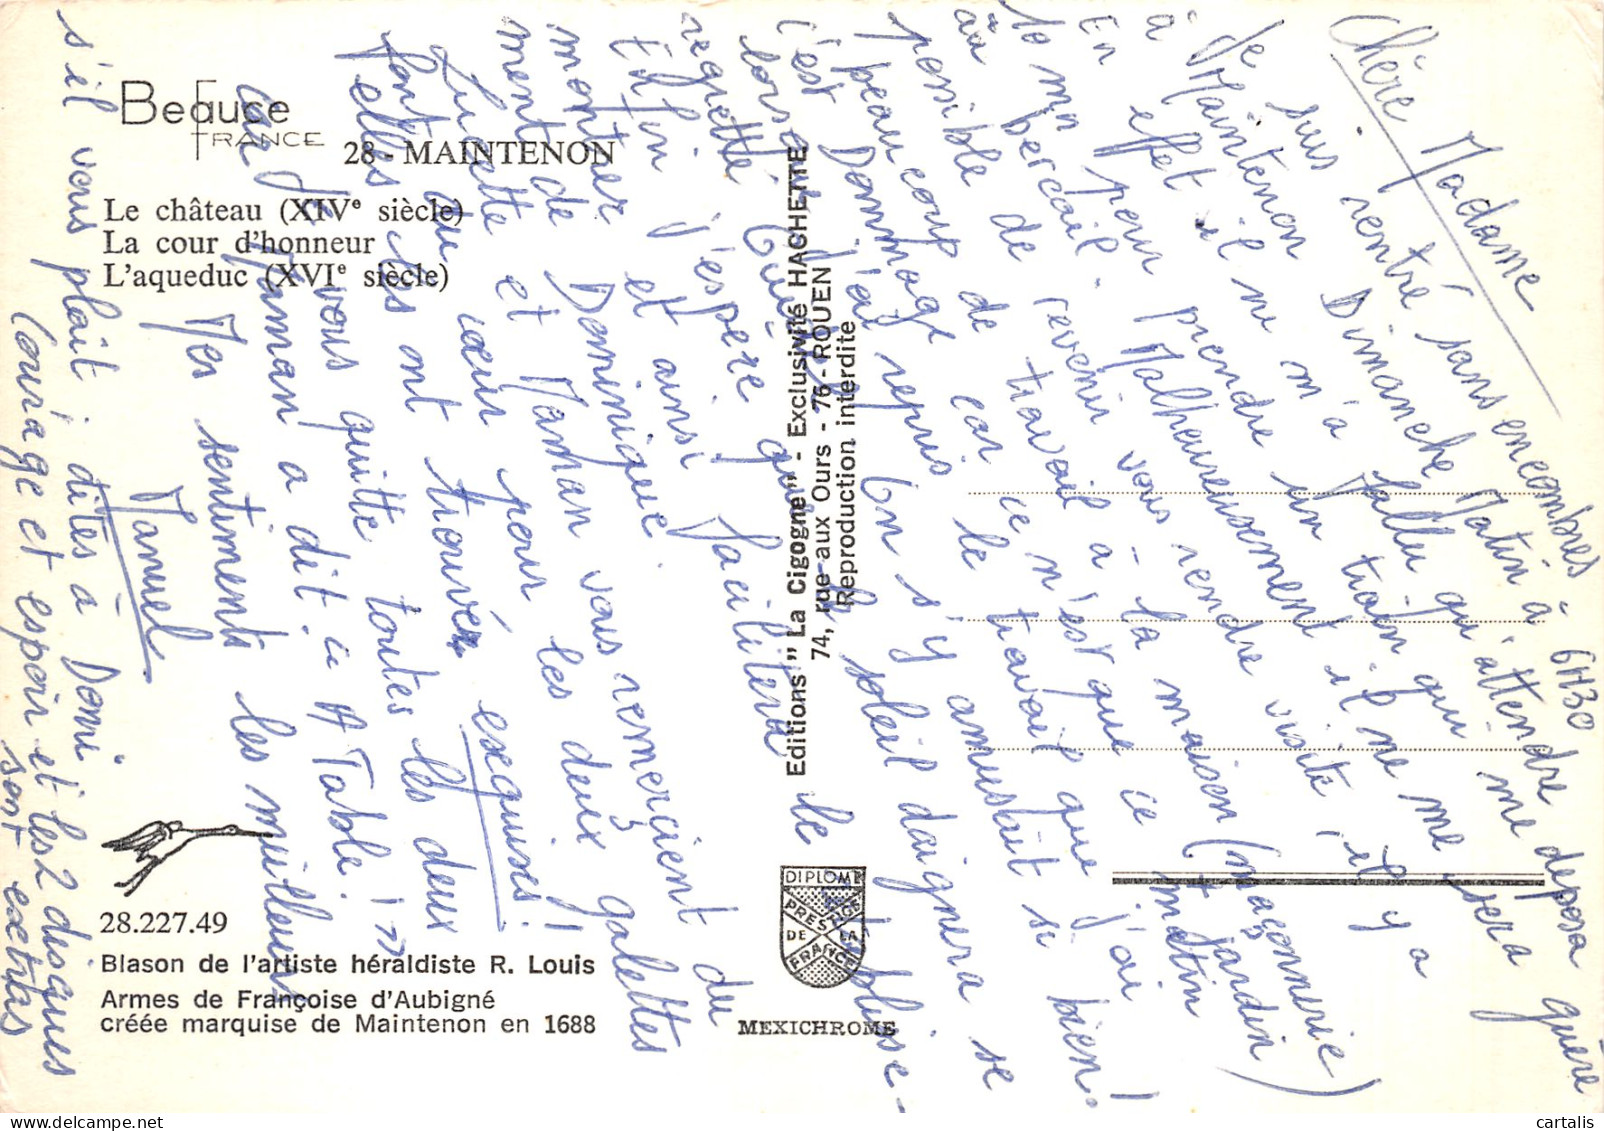 Beauce
FRANCE
28 - MAINTENON
Le château (XIVe siècle)
La cour d'honneur
L'aqueduc (XVIe siècle)
28.227.49
Blason de l'artiste héraldiste R. Louis
Armes de Françoise d'Aubigné
créée marquise de Maintenon en 1688
Editions "La Cigogne" - Exclusivité HACHETTE
74, rue aux Ours - 76 - ROUEN
Reproduction interdite
DIPLOME
PRESTIGE
DE LA
FRANCE
MEXICHROME
Chère Madame
Je suis rentré sans encombres à 6H30
à Maintenon Dimanche Matin à
En effet il ne m'a fallu qu'attendre
un peu prendre un train qui me déposa
to my bercail. Malheureusement il ne me sera guère
possible de revenir vous rendre visite il y a
beaucoup de travail à la maison (maçonnerie
et jardin)
c'est Dommage car ce n'est que ce matin
lorsque j'ai repris le travail que j'ai
regretté Guidel On s'y amusait si bien!
Enfin j'espère que le soleil daignera se
montrer et ainsi facilitera le rétablisse-
ment de Dominique.
Lucette et Maman vous remercient du
fond du cœur pour les deux galettes
elles les ont trouvées exquises!
Car je vous quitte toutes les deux
Maman a dit "A Table!"
Mes sentiments les meilleurs
Manuel
s'il vous plait dites à Domi
Courage et espoir et les 2 disques
sont extras
cartalis